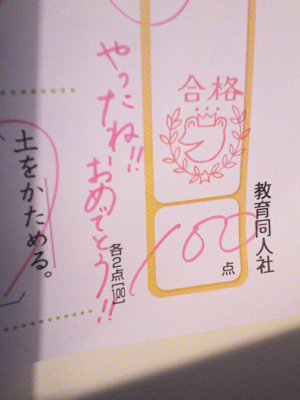 合格
教育同人社
100点
やったね!!
おめでとう!!
各2点[100]
土をかためる。